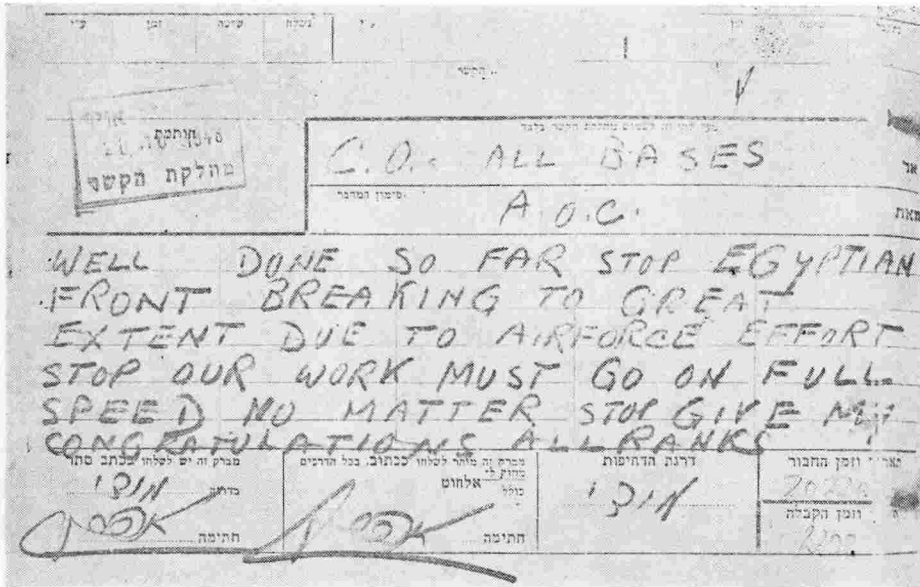 ע"י זמן שיטה נשלח
הקשר
חותמת
1948
מחלקת הקשר
C.O. ALL BASES
אל
סימון המדבר
A.O.C.
מאת
WELL DONE SO FAR STOP EGYPTIAN
FRONT BREAKING TO GREAT
EXTENT DUE TO AIRFORCE EFFORT
STOP OUR WORK MUST GO ON FULL
SPEED NO MATTER STOP GIVE MY
CONGRATULATIONS ALL RANKS
מברק זה יש לשלחו בכתב סתר
בדרגה
חתימה
מברק זה מותר לשלחו ככתוב, בכל הדרכים
כולל אלחוט
חתימה
דרגת הדחיפות
וזמן החבור
וזמן הקבלה